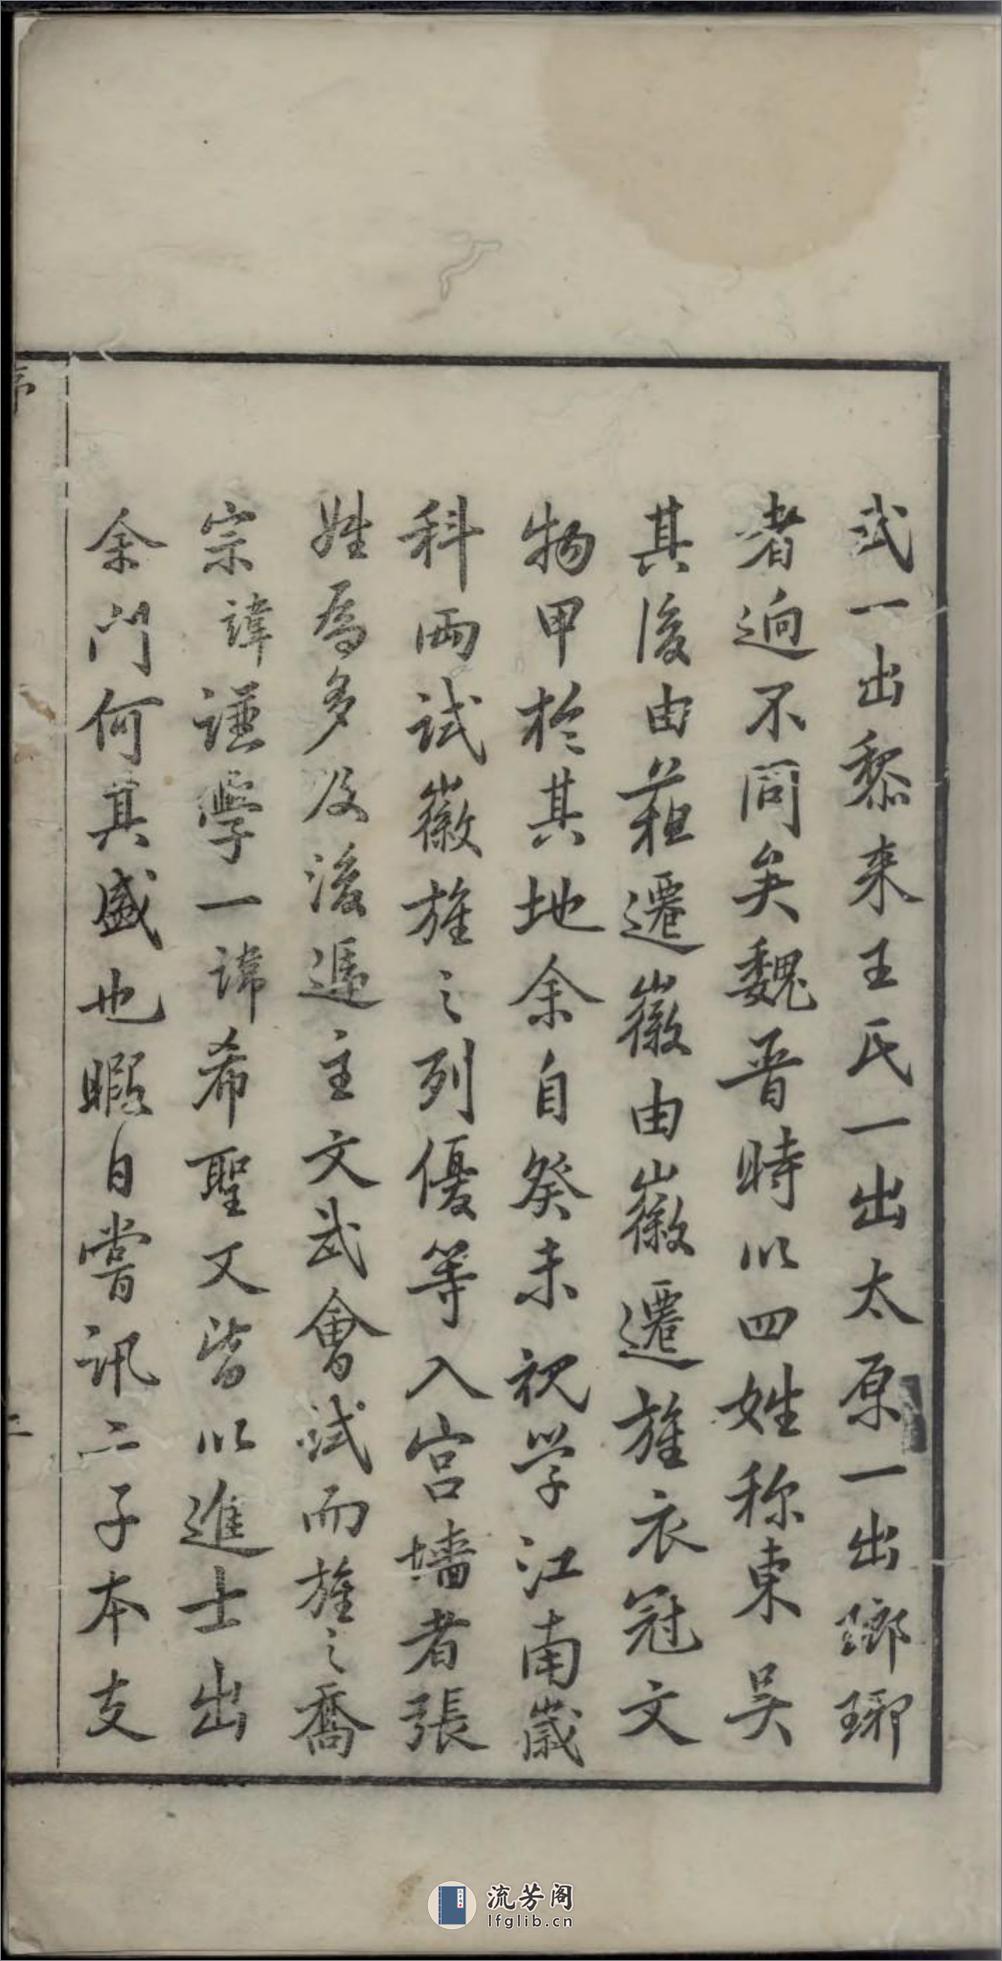 武一出黎来王氏一出太原一出瑯琊
者逈不同矣魏晋時以四姓称東吴
其後由蘓遷徽由徽遷旌衣冠文
物甲於其地余自癸未視学江南嵗
科両試徽旌之列優等入宫墙者張
姓為多及後遞主文武會試而旌之喬
宗諱謹學一諱希聖又皆以進士出
余門何其盛也暇日嘗訊二子本支
序
二
流芳阁
lfglib.cn